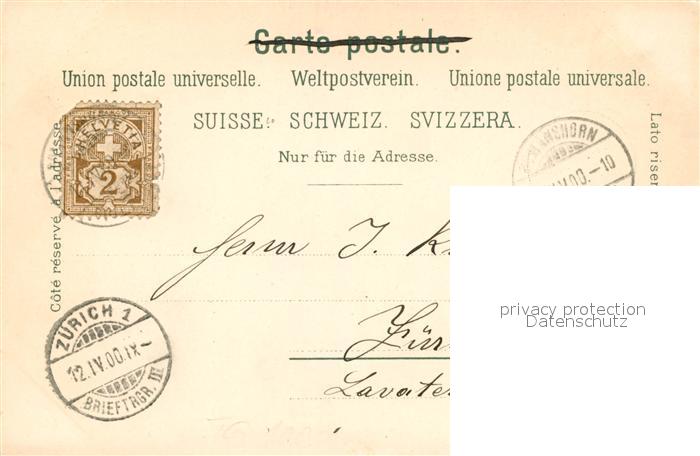 Carte postale.
Union postale universelle. Weltpostverein. Unione postale universale.
SUISSE. SCHWEIZ. SVIZZERA.
Nur für die Adresse.
Côté réservé à l'adresse.
Lato riser
HELVETIA
2
MANSHORN
IV.00.-10
Herrn J. K
privacy protection
Datenschutz
ZÜRICH 1
12.IV.00.IX-
BRIEFTRGR. III
Zür
Lavate